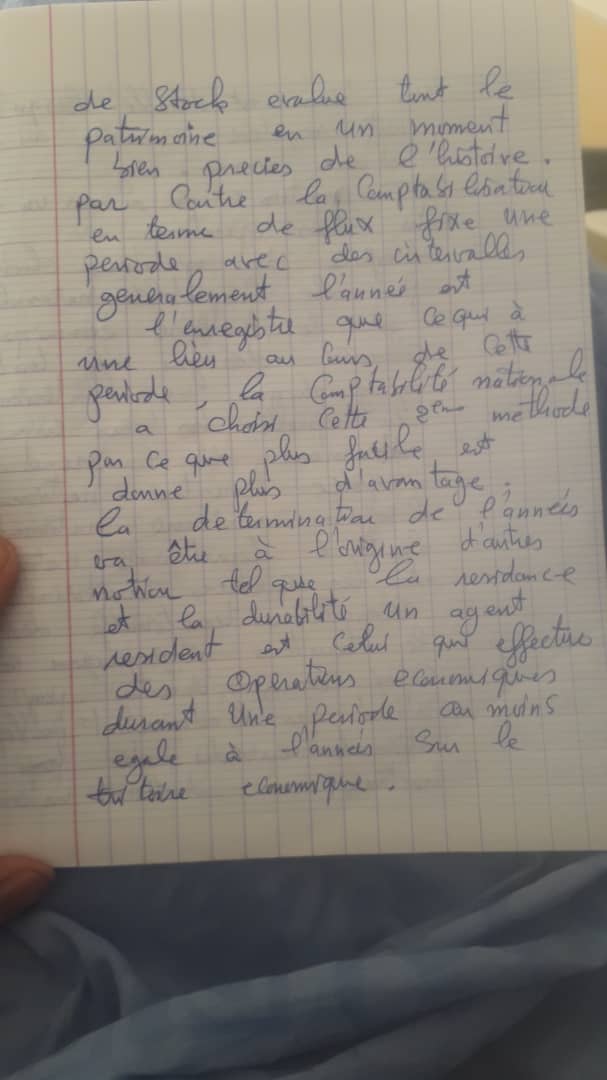 de stock evalue tout le
patrimoine en un moment
bien precies de l'histoire.
par Contre la Comptabilisation
en terme de flux fixe une
periode avec des intervalles
generalement l'année est
l'enregistre que ce qui à
une lieu au Cours de Cette
periode, la Comptabilité nationale
a choisi Cette 2eme methode
par ce que plus facile est
donne plus d'avantage.
la determination de l'années
va être à l'origine d'autres
notion tel que la residance
et la durabilité un agent
resident est Celui qui effectue
des Operations economiques
durant une periode au moins
egale à l'années Sur le
toire economique.